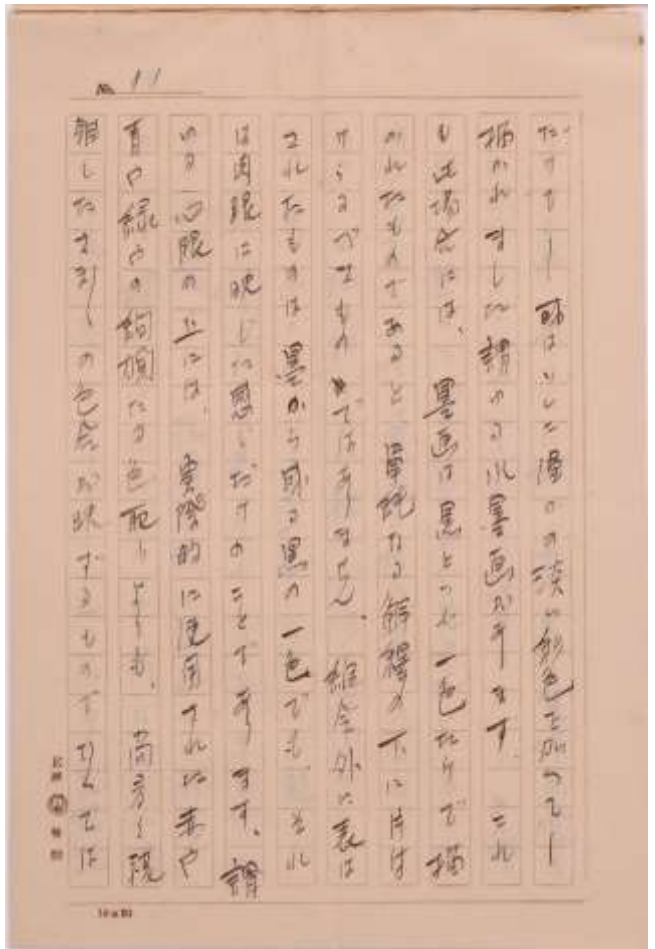 No. 11
だけで――或はこした隈かの淡い彩色を加へて――
描かれました謂ゆる水墨画があります これ
も此場合には、墨画は黒といふ一色だけで描
かれたものであると 単純なる解釋の下に片付
けらるべきものではありません、縦令外に表は
されたものは 墨から成る黒の一色でも、それ
は肉眼に映じた感じだけのことであります、謂
ゆる心眼の上には、実際的に使用された赤や
青や緑やの絢爛たる色彩よりも、尚ほ多く
した さま〲の色合が映ずるもので
10×20